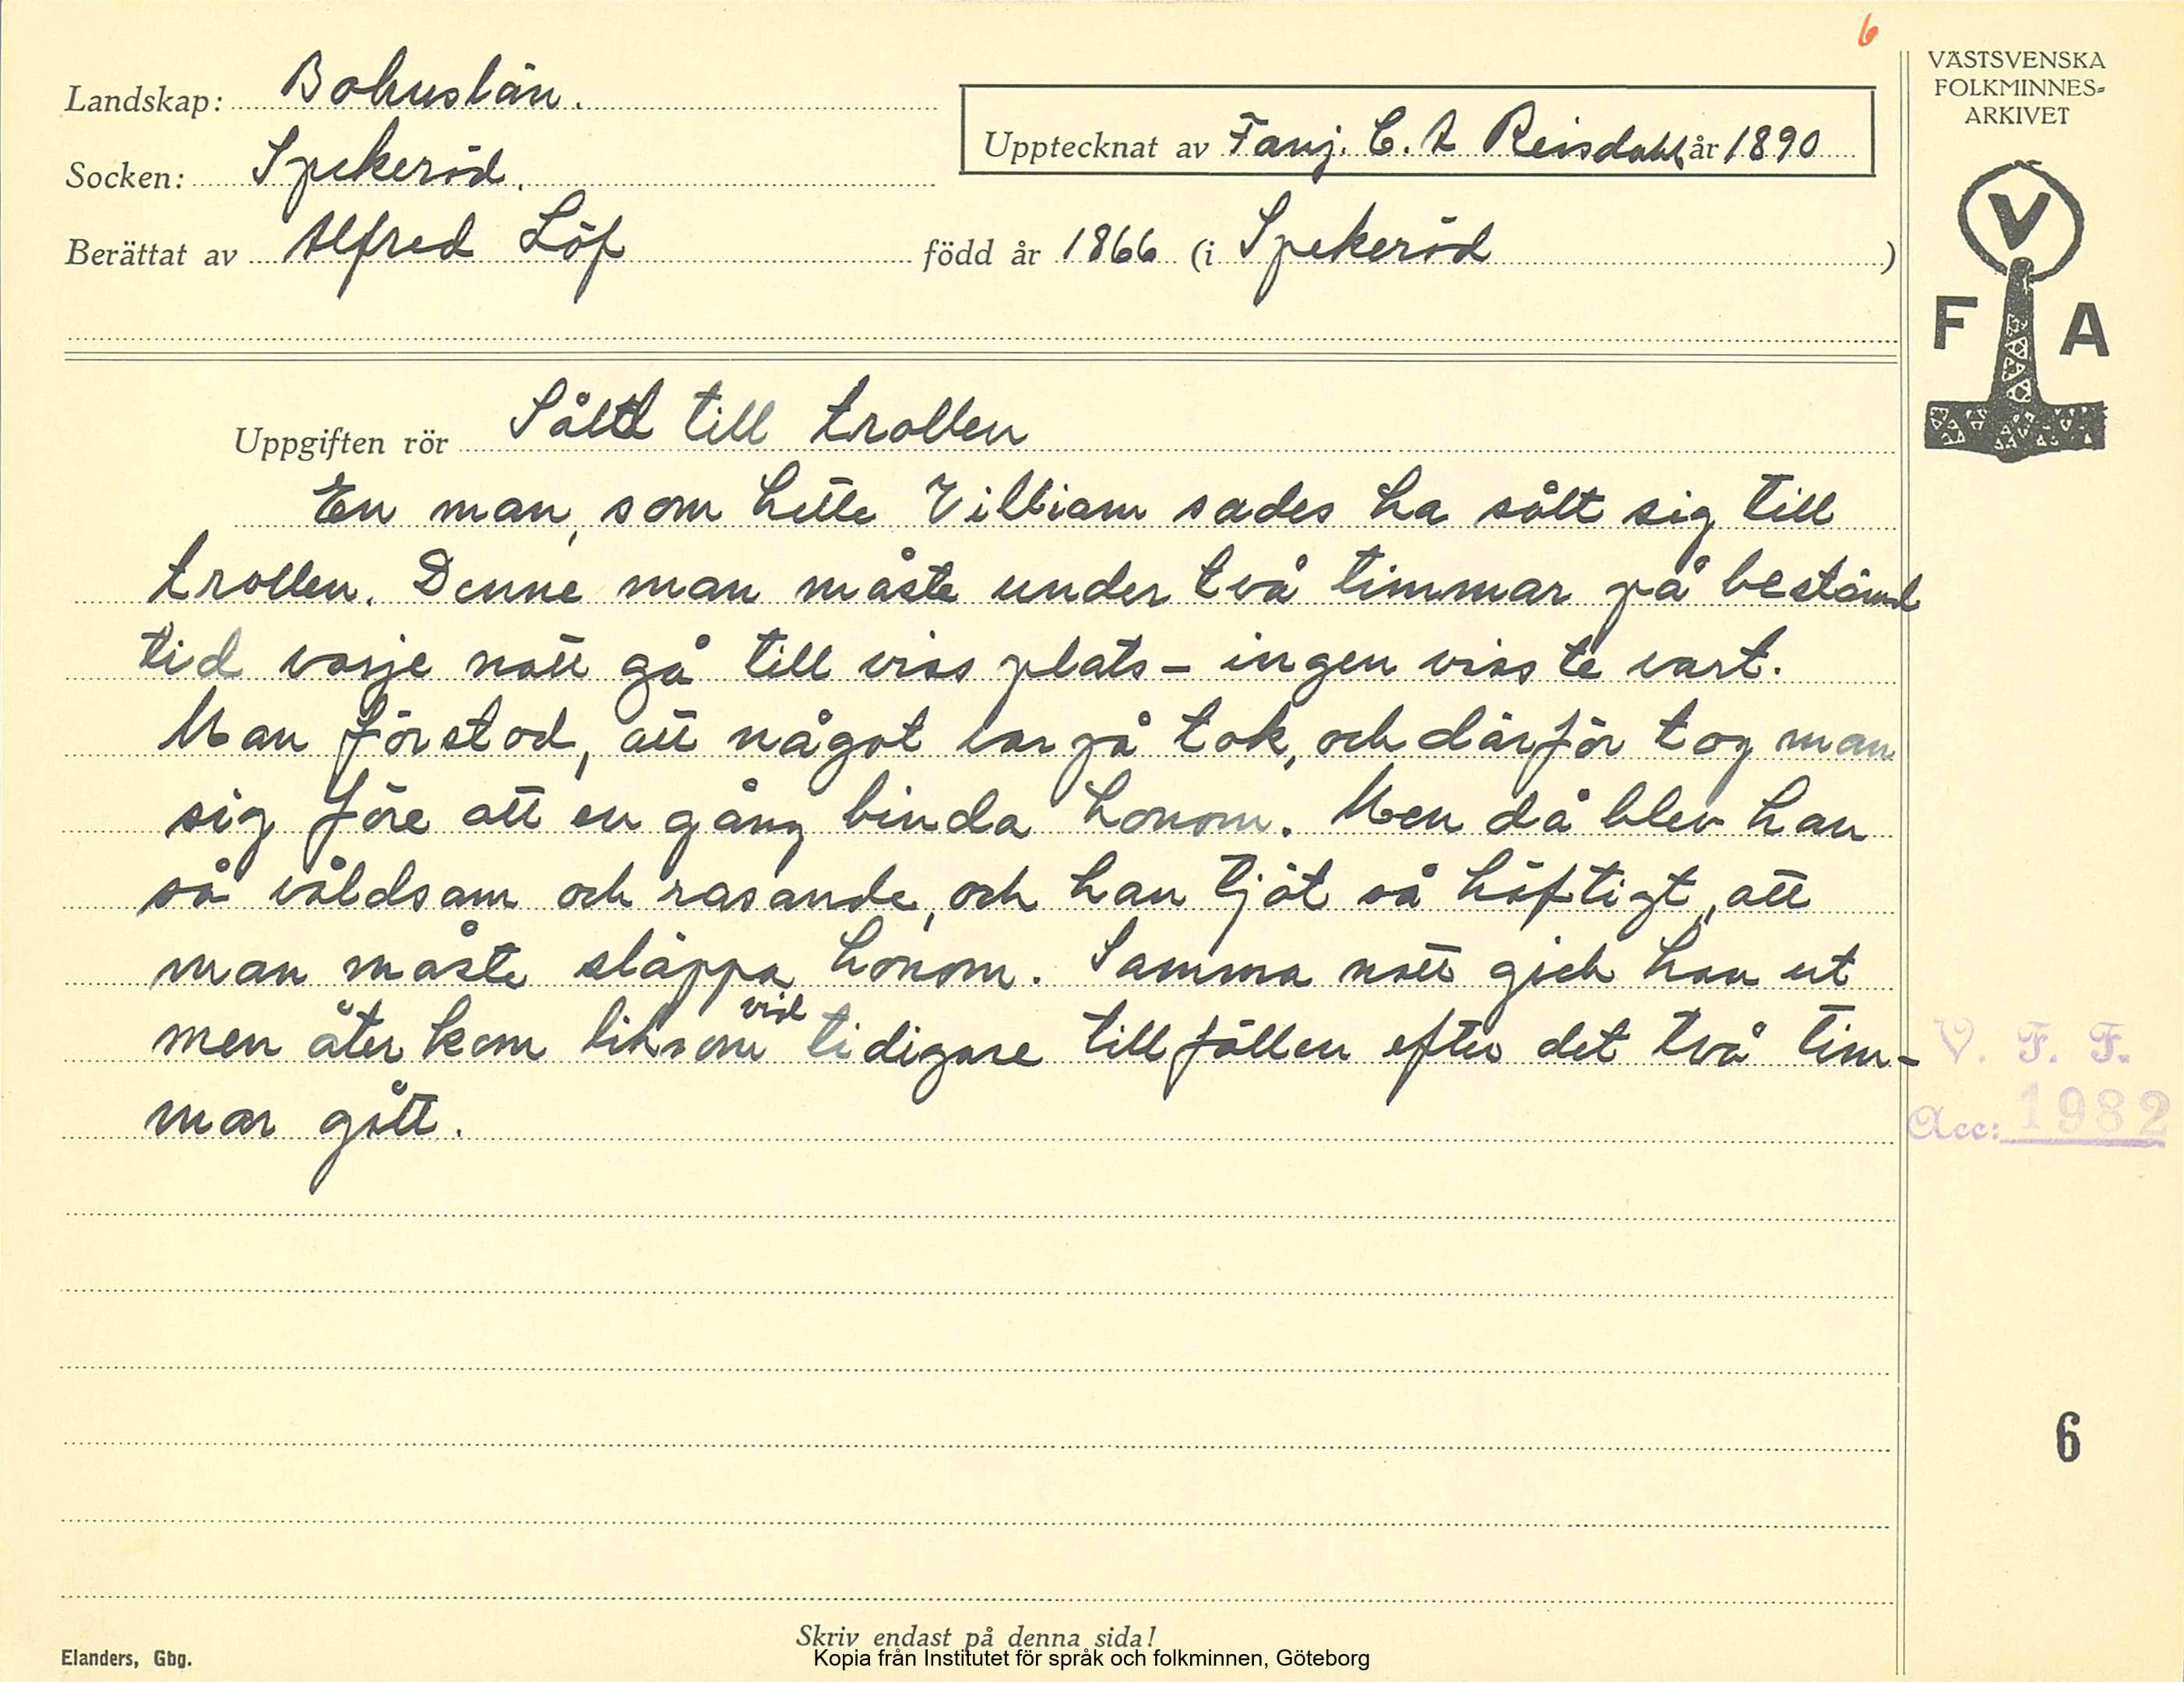 6
VÄSTSVENSKA
FOLKMINNES-
ARKIVET
Landskap: Bohuslän.
Upptecknat av Fanj. C. A Reisdahl år 1890
Socken: Spekeröd.
Berättat av Alfred Löf född år 1866 (i Spekeröd)
V
F A
Uppgiften rör Såld till trollen
En man, som hette Villiam sades ha sålt sig till
trollen. Denne man måste under två timmar på bestämd
tid varje natt gå till viss plats – ingen visste vart.
Man förstod, att något var på tok, och därför tog man
sig före att en gång binda honom. Men då blev han
så våldsam och rasande, och han tjöt så häftigt, att
man måste släppa honom. Samma natt gick han ut
men återkom liksom vid tidigare tillfällen efter det två tim-
mar gått.
V. F. F.
Acc: 1982
6
Skriv endast på denna sida!
Elanders, Gbg.
Kopia från Institutet för språk och folkminnen, Göteborg